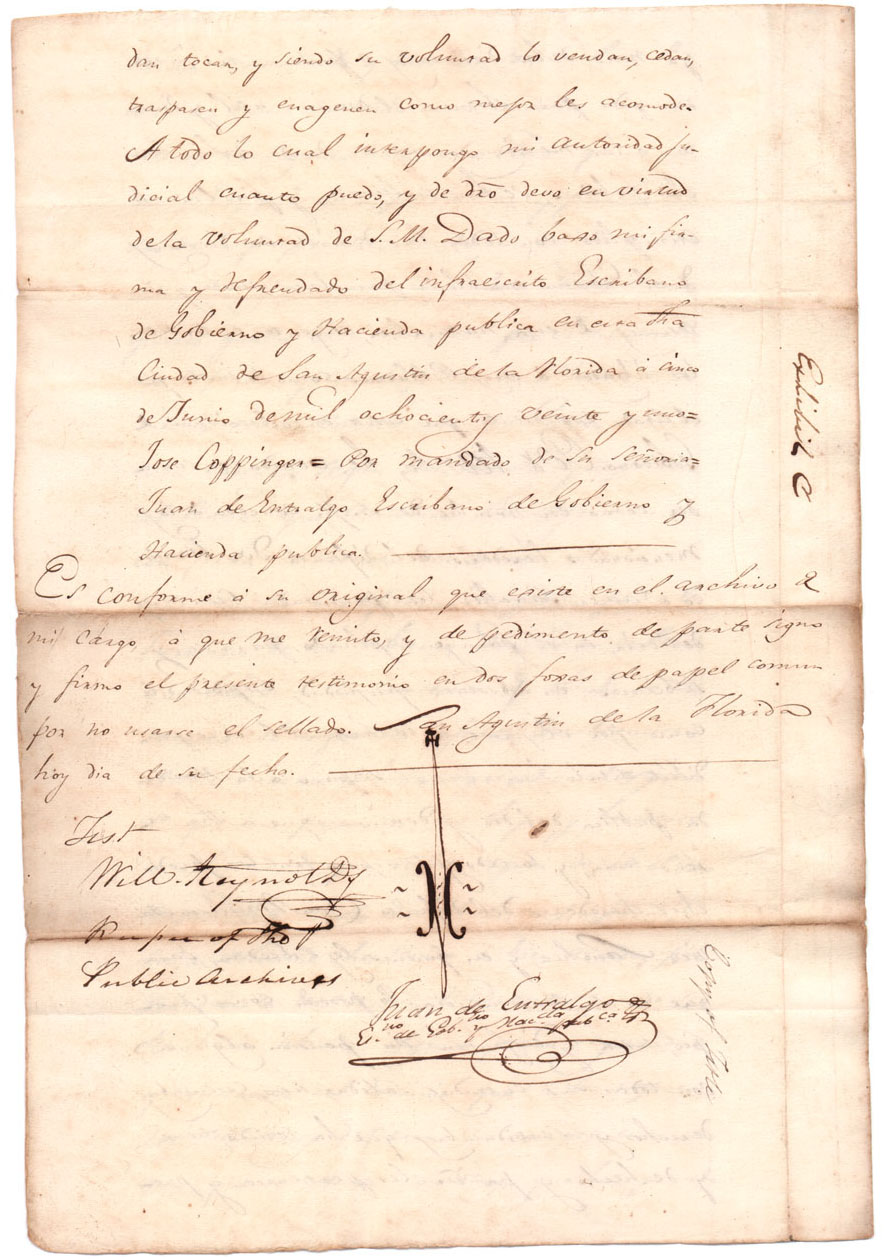 dan tocar, y siendo su voluntad lo vendan, cedan,
traspasen y enagenen como mejor les acomode.
A todo lo cual interpongo mi autoridad ju-
dicial cuanto puedo, y de dro devo en virtud
de la voluntad de S. M. Dado baxo mi fir-
ma y refrendado del infraescrito Escribano
de Gobierno y Hacienda publica en esta
Ciudad de San Agustin de la Florida á cinco
de Junio de mil ochocientos veinte y uno=
Jose Coppinger= Por mandado de su señoria=
Juan de Entralgo Escribano de Gobierno y
Hacienda publica.
Es conforme á su original que existe en el archivo de
mi cargo, á que me remito, y de pedimento de parte signo
y firmo el presente testimonio en dos foxas de papel comun
por no usarse el sellado. San Agustin de la Florida
hoy dia de su fecho.
Test
Will. Reynolds
Keeper of the
Public Archives
Juan de Entralgo
Eno. de Gobno. y Hacda. pubca.
Exhibit C
Copy of